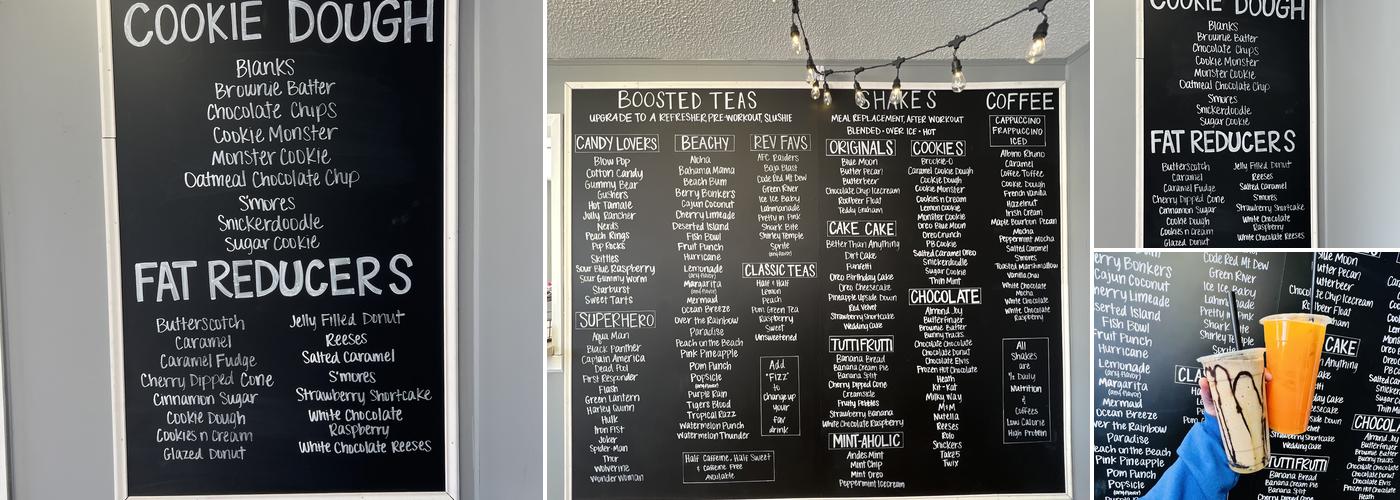 COOKIE DOUGH
Blanks
Brownie Batter
Chocolate Chips
Cookie Monster
Monster Cookie
Oatmeal Chocolate Chip
S'mores
Snickerdoodle
Sugar Cookie
FAT REDUCERS
Butterscotch
Caramel
Caramel Fudge
Cherry Dipped Cone
Cinnamon Sugar
Cookie Dough
Cookies n Cream
Glazed Donut
Jelly Filled Donut
Reeses
Salted Caramel
S'mores
Strawberry Shortcake
White Chocolate
Raspberry
White Chocolate Reeses
BOOSTED TEAS
UPGRADE TO A REFRESHER, PRE-WORKOUT, SLUSHIE
CANDY LOVERS
Blow Pop
Cotton Candy
Gummy Bear
Gushers
Hot Tamale
Jolly Rancher
Nerds
Peach Rings
Pop Rocks
Skittles
Sour Blue Raspberry
Sour Gummy Worm
Starburst
Sweet Tarts
SUPERHERO
Aqua Man
Black Panther
Captain America
Dead Pool
First Responder
Flash
Green Lantern
Harley Quinn
Hulk
Iron Fist
Joker
Spider Man
Thor
Wolverine
Wonder Woman
BEACHY
Aloha
Bahama Mama
Beach Bum
Berry Bonkers
Cajun Coconut
Cherry Limeade
Deserted Island
Fish Bowl
Fruit Punch
Hurricane
Lemonade
(any flavor)
Margarita
(any flavor)
Mermaid
Ocean Breeze
Over the Rainbow
Paradise
Peach on the Beach
Pink Pineapple
Pom Punch
Popsicle
(any flavor)
Purple Rain
Tigers Blood
Tropical Razz
Watermelon Punch
Watermelon Thunder
Half Caffeine, Half Sweet
& Caffeine Free
Available
REV FAVS
AFC Raiders
Baja Blast
Code Red Mt Dew
Green River
Ice Ice Baby
Lahmanade
Pretty in Pink
Shark Bite
Shirley Temple
Sprite
(any flavor)
CLASSIC TEAS
Half & Half
Lemon
Peach
Pom Green Tea
Raspberry
Sweet
Unsweetened
Add
"FIZZ"
to
change up
your
fav
drink
SHAKES
MEAL REPLACEMENT, AFTER WORKOUT
BLENDED • OVER ICE • HOT
ORIGINALS
Blue Moon
Butter Pecan
Butterbeer
Chocolate Chip Icecream
Rootbeer Float
Teddy Graham
CAKE CAKE
Better Than Anything
Dirt Cake
Funfetti
Oreo Birthday Cake
Oreo Cheesecake
Pineapple Upside Down
Red Velvet
Strawberry Shortcake
Wedding Cake
TUTTI FRUTTI
Banana Bread
Banana Cream Pie
Banana Split
Cherry Dipped Cone
Creamsicle
Fruity Pebbles
Strawberry Banana
Strawberry Cheesecake
MINT-AHOLIC
Andes Mint
Mint Chip
Mint Oreo
Peppermint Icecream
COOKIES
Brookie-O
Caramel Cookie Dough
Cookie Dough
Cookie Monster
Cookies n Cream
Lemon Cookie
Monster Cookie
Oreo Blue Moon
Oreo Crunch
PB Cookie
Salted Caramel Oreo
Snickerdoodle
Sugar Cookie
Thin Mint
CHOCOLATE
Almond Joy
Butterfinger
Brownie Batter
Bunny Tracks
Chocolate Cake
Chocolate Donut
Chocolate Elvis
Frozen Hot Chocolate
Heath
Kit-Kat
Milky Way
M&M
Nutella
Reeses
Rolo
Snickers
Take 5
Twix
COFFEE
CAPPUCCINO
FRAPPUCCINO
ICED
Albino Rhino
Caramel
Coffee Toffee
Cookie Dough
French Vanilla
Hazelnut
Irish Cream
Maple Bourbon Pecan
Mocha
Peppermint Mocha
Salted Caramel
S'mores
Toasted Marshmallow
Vanilla Chai
White Chocolate
Mocha
White Chocolate
White Chocolate
Raspberry
All
Shakes
are
1/3 Daily
Nutrition
&
Coffees
Low Calorie
High Protein
COOKIE DOUGH
Blanks
Brownie Batter
Chocolate Chips
Cookie Monster
Monster Cookie
Oatmeal Chocolate Chip
S'mores
Snickerdoodle
Sugar Cookie
FAT REDUCERS
Butterscotch
Caramel
Caramel Fudge
Cherry Dipped Cone
Cinnamon Sugar
Cookie Dough
Cookies n Cream
Glazed Donut
Jelly Filled Donut
Reeses
Salted Caramel
S'mores
Strawberry Shortcake
White Chocolate
Raspberry
White Chocolate Reeses
erry Bonkers
Cajun Coconut
herry Limeade
serted Island
Fish Bowl
ruit Punch
Hurricane
Lemonade
(any flavor)
Margarita
(any flavor)
Mermaid
Ocean Breeze
ver the Rainbow
Paradise
each on the Beach
Pink Pineapple
Pom Punch
Popsicle
(any flavor)
Code Red Mt Dew
Green River
Ice Ice Baby
Lahm
Pretty in
Shark
Shirley Te
Sprite
CLA
Blue Moon
utter Pecan
utterbeer
te Chip Icecream
CAKE
Anything
Strawberry Shortcake
Wedding Cake
TUTTI FRUTTI
Banana Bread
Banana Cream Pie
Banana Split
CHOCOL
Almond Joy
Butterfinger
Brownie Batter
Bunny Tracks
Chocolate Cake
Chocolate Donut
Chocolate Elvis
Frozen Hot Chocolate
Heath